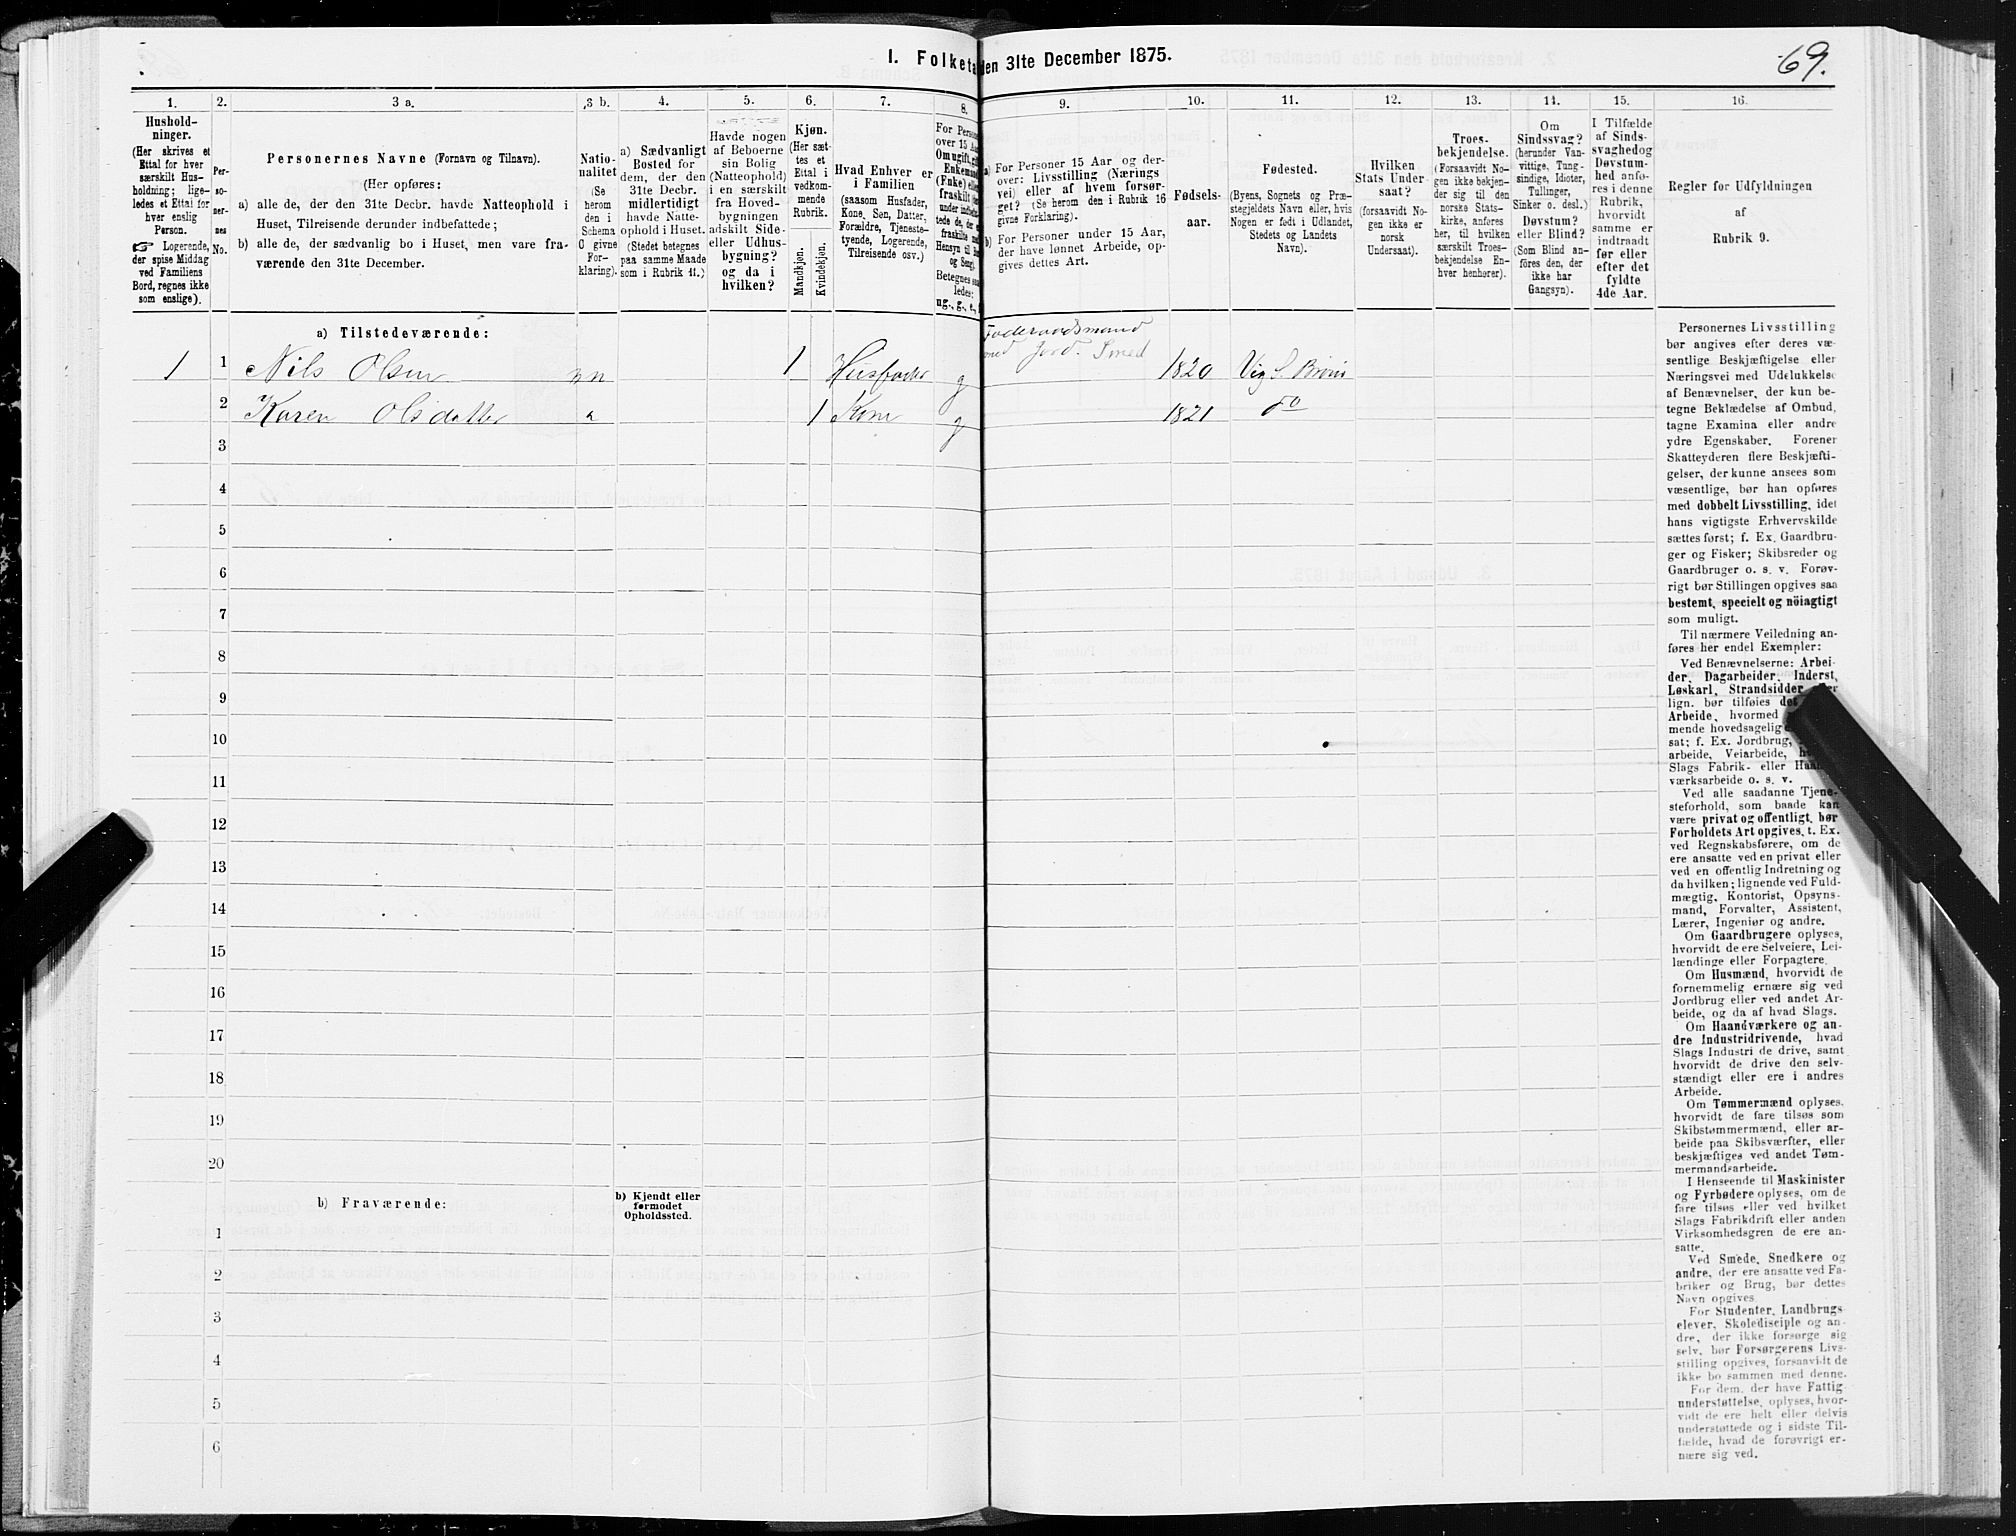 69.
I. Folketa den 31te December 1875.
1. 2. 3 a. 3 b. 4. 5. 6. 7. 8. 9. 10. 11. 12. 13. 14. 15. 16.
Hushold-
ninger.
(Her skrives et
Ettal for hver
særskilt Hus-
holdning; lige-
ledes et Ettal for
hver enslig
Person.
☞ Logerende,
der spise Middag
ved Familiens
Bord, regnes ikke
som enslige).
Per-
so-
ner-
nes
No.
Personernes Navne (Fornavn og Tilnavn).
(Her opføres:
a) alle de, der den 31te Decbr. havde Natteophold i
Huset, Tilreisende derunder indbefattede;
b) alle de, der sædvanlig bo i Huset, men vare fra-
værende den 31te December.
Natio-
nalitet
(Se
herom
den i
Schema
C givne
For-
klaring).
a) Sædvanligt
Bosted for
dem, der den
31te Decbr.
midlertidigt
havde Natte-
ophold i Huset.
(Stedet betegnes
paa samme Maade
som i Rubrik 11.)
Havde nogen
af Beboerne
sin Bolig
(Natteophold)
i en særskilt
fra Hoved-
bygningen
adskilt Side-
eller Udhus-
bygning?
og da i
hvilken?
Kjøn.
(Her sæt-
tes et
Ettal i
vedkom-
mende
Rubrik.
Mandkjøn.
Kvindekjøn.
Hvad Enhver er
i Familien
(saasom Husfader,
Kone, Søn, Datter,
Forældre, Tjeneste-
tyende, Logerende,
Tilreisende osv.)
For Person
over 15 Aa
Om ugift, gif
Enkeman
(Enke) elle
fraskilt
under indbef
tede de, der
fraskilte
Hensyn til Bo
og Seng).
Betegnes saa
ledes:
ug., g., e.,
a) For Personer 15 Aar og der-
over: Livsstilling (Nærings
vei) eller af hvem forsør-
get? (Se herom den i Rubrik 16
givne Forklaring).
b) For Personer under 15 Aar,
der have lønnet Arbeide, op-
gives dettes Art.
Fødsels-
aar.
Fødested.
(Byens, Sognets og Præ-
stegjeldets Navn eller, hvis
Nogen er født i Udlandet,
Stedets og Landets
Navn).
Hvilken
Stats Under
saat?
(forsaavidt No-
gen ikke er
norsk
Undersaat).
Troes-
bekjendelse.
(Forsaavidt No-
gen ikke bekjen-
der sig til den
norske Stats-
kirke, anføres
her, til hvilken
særskilt Troes-
bekjendelse En-
hver henhører).
Om
Sindssvag?
(herunder Van-
vittige, Tung-
sindige, Idioter,
Tullinger,
Sinker o. desl.)
Døvstum?
eller Blind?
(Som Blind an-
føres den, der
ikke har
Gangsyn).
I Tilfælde
af Sinds-
svaghed og
Døvstum-
hed anfø-
res i denne
Rubrik,
hvorvidt
samme er
indtraadt
før eller
efter det
fyldte
4de Aar.
Regler for Udfyldningen
af
Rubrik 9.
a) Tilstedeværende:
Føderaadsmand
med Jord. Smed
1 1 Nils Olsen n 1 Husfader g 1820 Vig S. Brøns
2 Karen Olsdatter 1 Kone g 1821 do
3
4
5
6
7
8
9
10
11
12
13
14
15
16
17
18
19
20
b) Fraværende:
b) Kjendt eller
formodet
Opholdssted.
1
2
3
4
5
6
Personernes Livsstilling
bør angives efter deres væ-
sentlige Beskjæftigelse eller
Næringsvei med Udelukkelse
af Benævnelser, der kun be-
tegne Beklædelse af Ombud,
tagne Examina eller andre
ydre Egenskaber. Forener
Skatteyderen flere Beskjæfti-
gelser, der kunne ansees som
væsentlige, bør han opføres
med dobbelt Livsstilling, idet
hans vigtigste Erhvervskilde
sættes først; f. Ex. Gaardbru-
ger og Fisker; Skibsreder og
Gaardbruger o. s. v. Forøv-
rigt bør Stillingen opgives saa
bestemt, specielt og nöiagtigt
som muligt.
Til nærmere Veiledning an-
føres her endel Exempler:
Ved Benævnelserne: Arbei-
der, Dagarbeider, Inderst,
Løskarl, Strandsidder
lign. bør tilføies det
Arbeide, hvormed
mende hovedsagelig
sat; f. Ex. Jordbrug,
arbeide, Veiarbeide,
Slags Fabrik- eller Haand-
værksarbeide o. s. v.
Ved alle saadanne Tjene-
steforhold, som baade kan
være privat og offentligt, bør
Forholdets Art opgives, t. Ex.
ved Regnskabsførere, om de
ere ansatte ved en privat eller
ved en offentlig Indretning og
da hvilken; lignende ved Fuld-
mægtig, Kontorist, Opsyns-
mand, Forvalter, Assistent,
Lærer, Ingeniør og andre.
Om Gaardbrugere oplyses,
hvorvidt de ere Selveiere, Lei-
lændinge eller Forpagtere.
Om Husmænd, hvorvidt de
fornemmelig ernære sig ved
Jordbrug eller ved andet Ar-
beide, og da af hvad Slags.
Om Haandværkere og an-
dre Industridrivende, hvad
Slags Industri de drive, samt
hvorvidt de drive den selv-
stændigt eller ere i andres
Arbeide.
Om Tømmermænd oplyses,
hvorvidt de fare tilsøs som
Skibstømmermænd, eller ar-
beide paa Skibsværfter, eller
beskjæftiges ved andet Tøm-
mermandsarbeide.
I Henseende til Maskinister
og Fyrbødere oplyses, om de
fare tilsøs eller ved hvilket
Slags Fabrikdrift eller anden
Virksomhedsgren de ere an-
satte.
Ved Smede, Snedkere og
andre, der ere ansatte ved Fa-
briker og Brug, bør dettes
Navn opgives.
For Studenter, Landbrugs
elever, Skoledisciple og an-
dre, der ikke forsørge sig
selv, bør Forsørgerens Livs-
stilling opgives, forsaavidt de
ikke bo sammen med denne.
For dem, der have Fattig
understøttelse, oplyses, hvor-
vidt de ere helt eller delvis
understøttede og i sidste Til-
fælde, hvad de forøvrigt er-
nære sig ved.